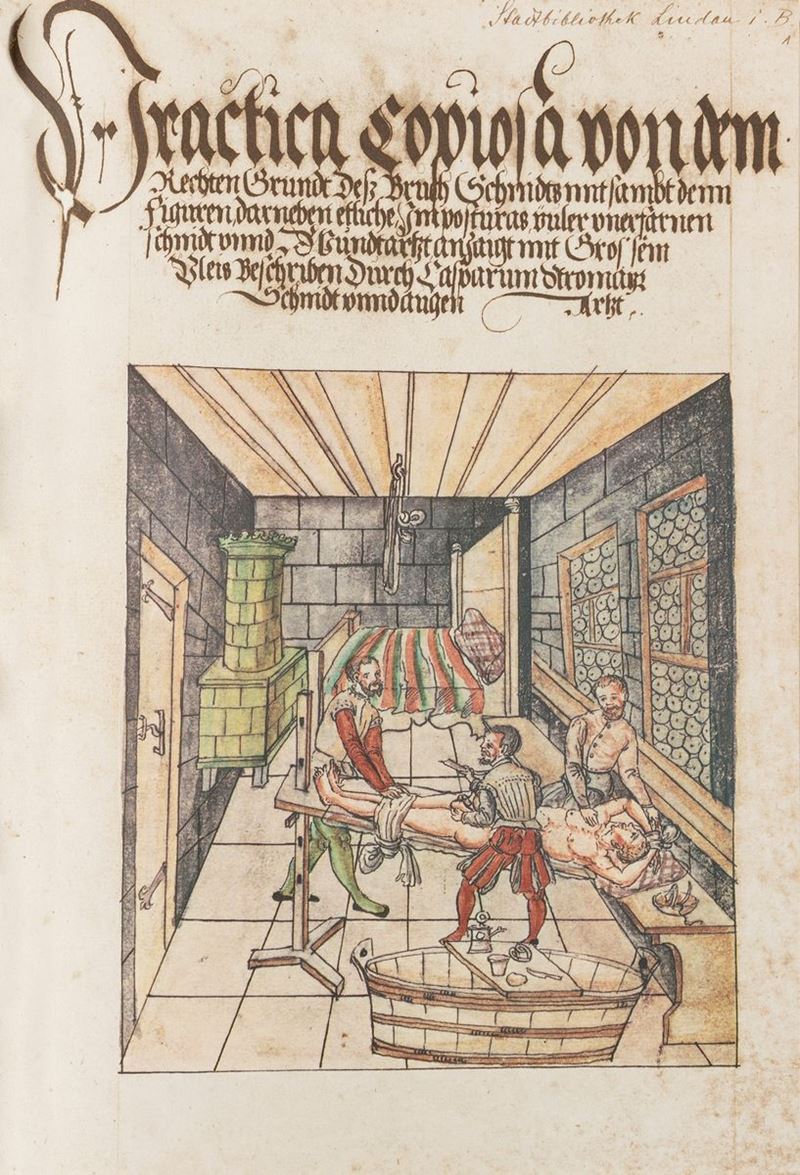 Stadtbibliothek Lindau i. B.
Practica Copiosa von dem
Rechten Grundt Desz Bruch Schnidts mit sambt denn
Figuren, darneben etliche Impossturas viler vnerfarnen
schnidt vnnd Wundtartzt anzaigt mit Grossem
Vleis Beschriben Durch Casparum Stromayr
Schnidt vnnd augen Artzt